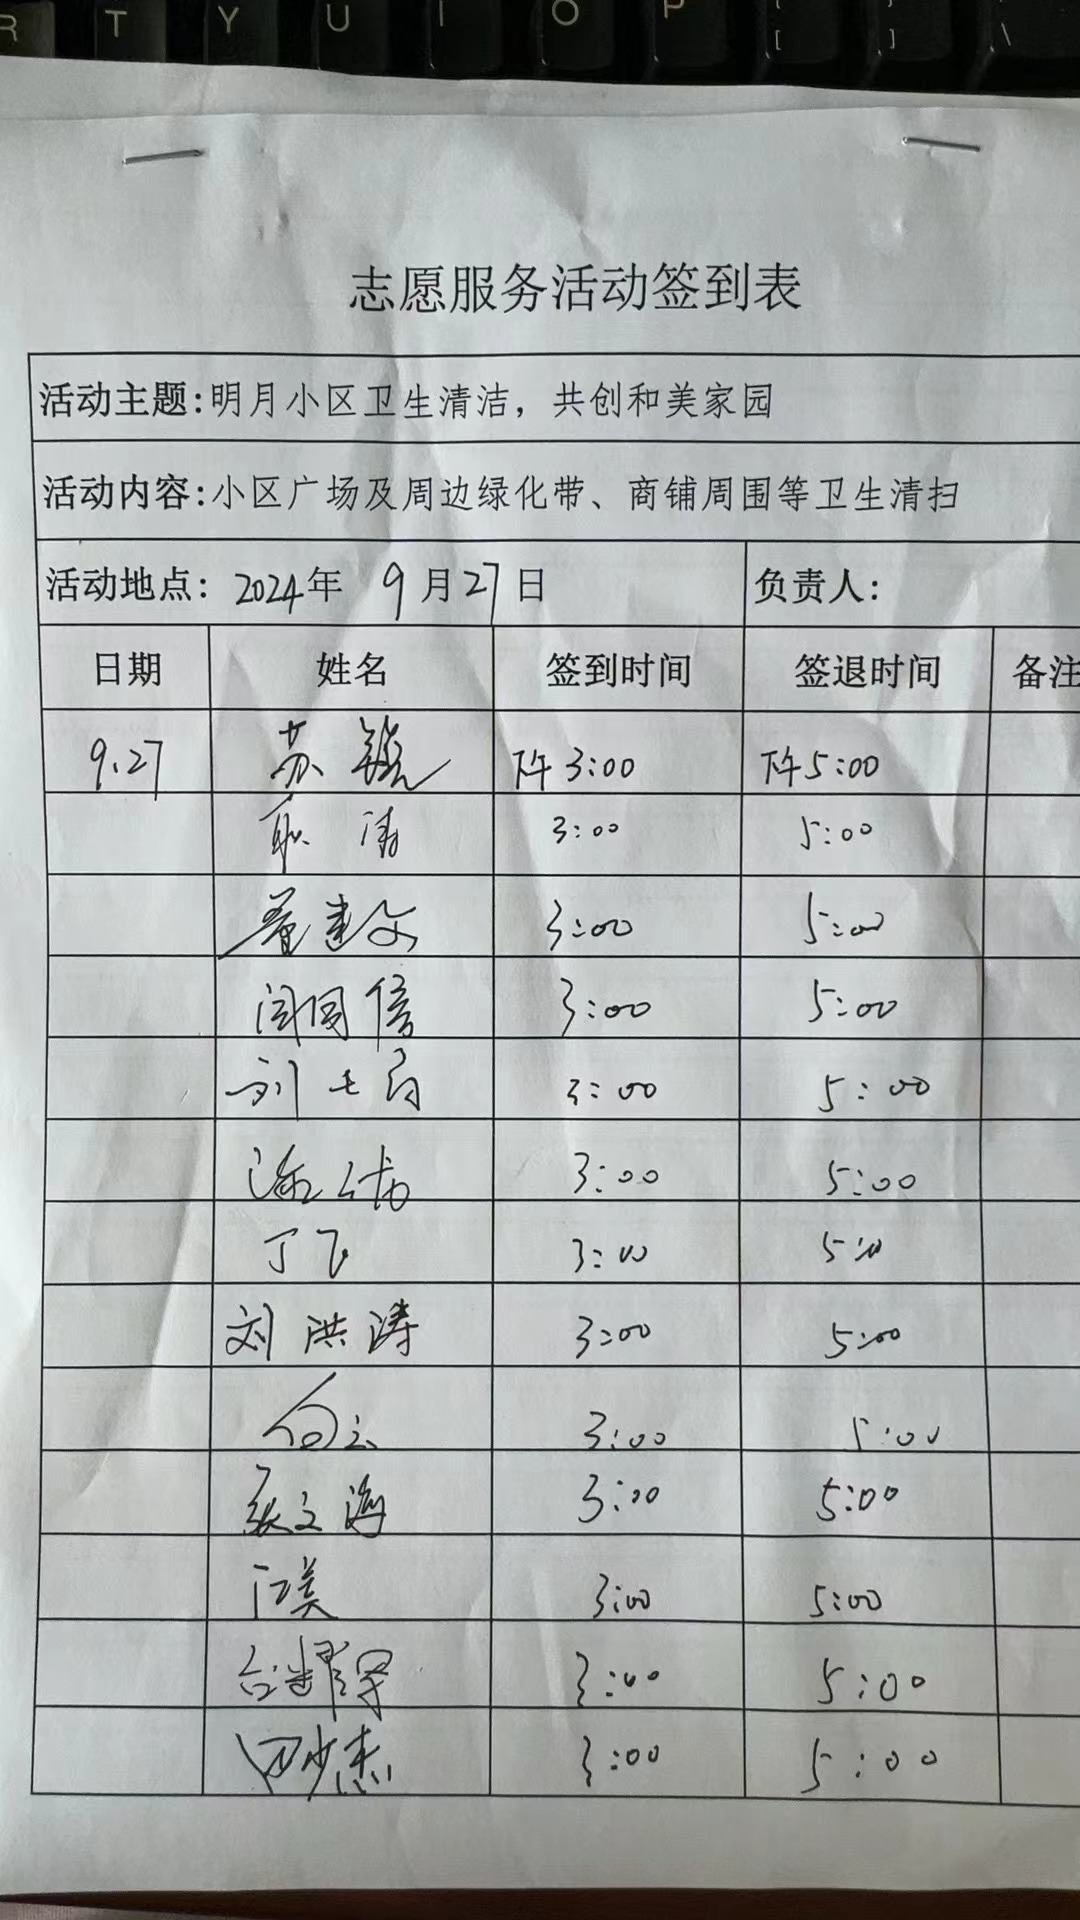 R T Y U I O P [ ] \
志愿服务活动签到表
活动主题:明月小区卫生清洁，共创和美家园
活动内容:小区广场及周边绿化带、商铺周围等卫生清扫
活动地点: 2024年 9月27日 负责人:
日期 姓名 签到时间 签退时间 备注
9.27 苏 下午3:00 下午5:00
涛 3:00 5:00
建文 3:00 5:00
闫国信 3:00 5:00
刘 3:00 5:00
3:00 5:00
丁飞 3:00 5:00
刘洪涛 3:00 5:00
向云 3:00 5:00
张文海 3:00 5:00
江美 3:00 5:00
3:00 5:00
田少杰 3:00 5:00